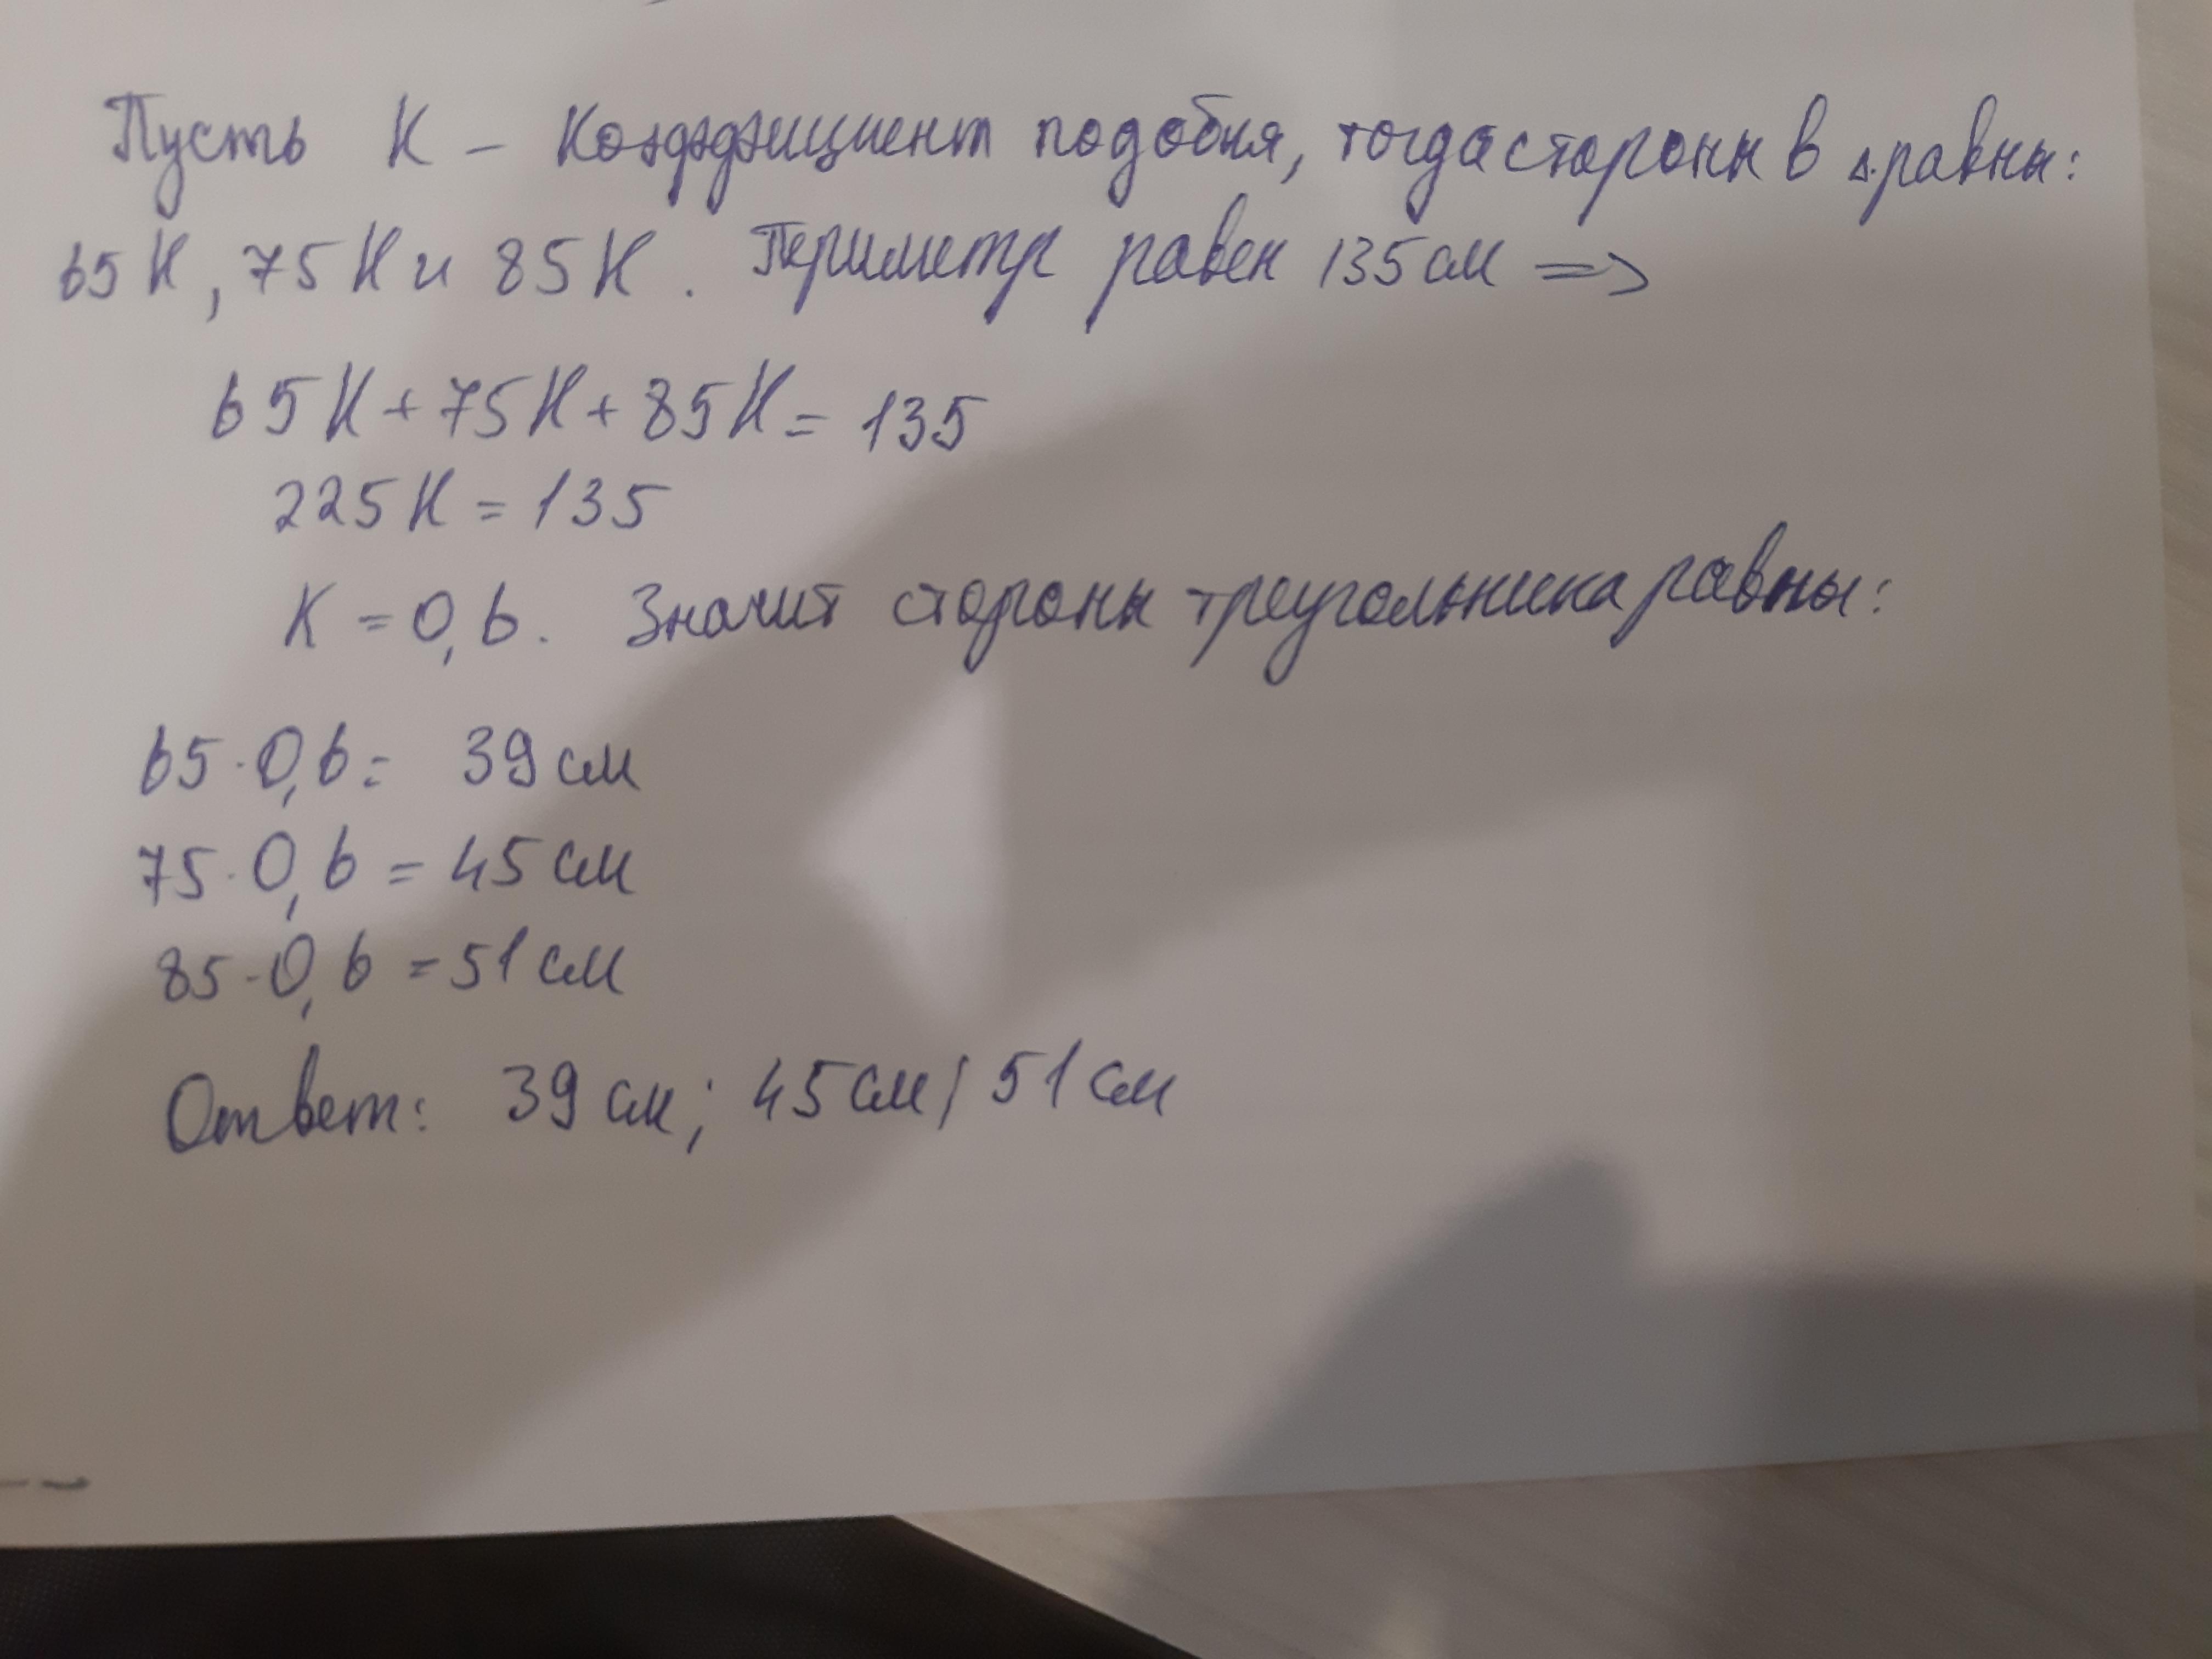 Пусть К - Коэффициент подобия, тогда стороны в Δ. равны:
65К, 75К и 85К. Периметр равен 135см =>
65К+75К+85К= 135
225К = 135
К = 0,6. Значит стороны треугольника равны:
65·0,6= 39 см
75·0,6 = 45 см
85·0,6 = 51 см
Ответ: 39 см; 45 см; 51 см